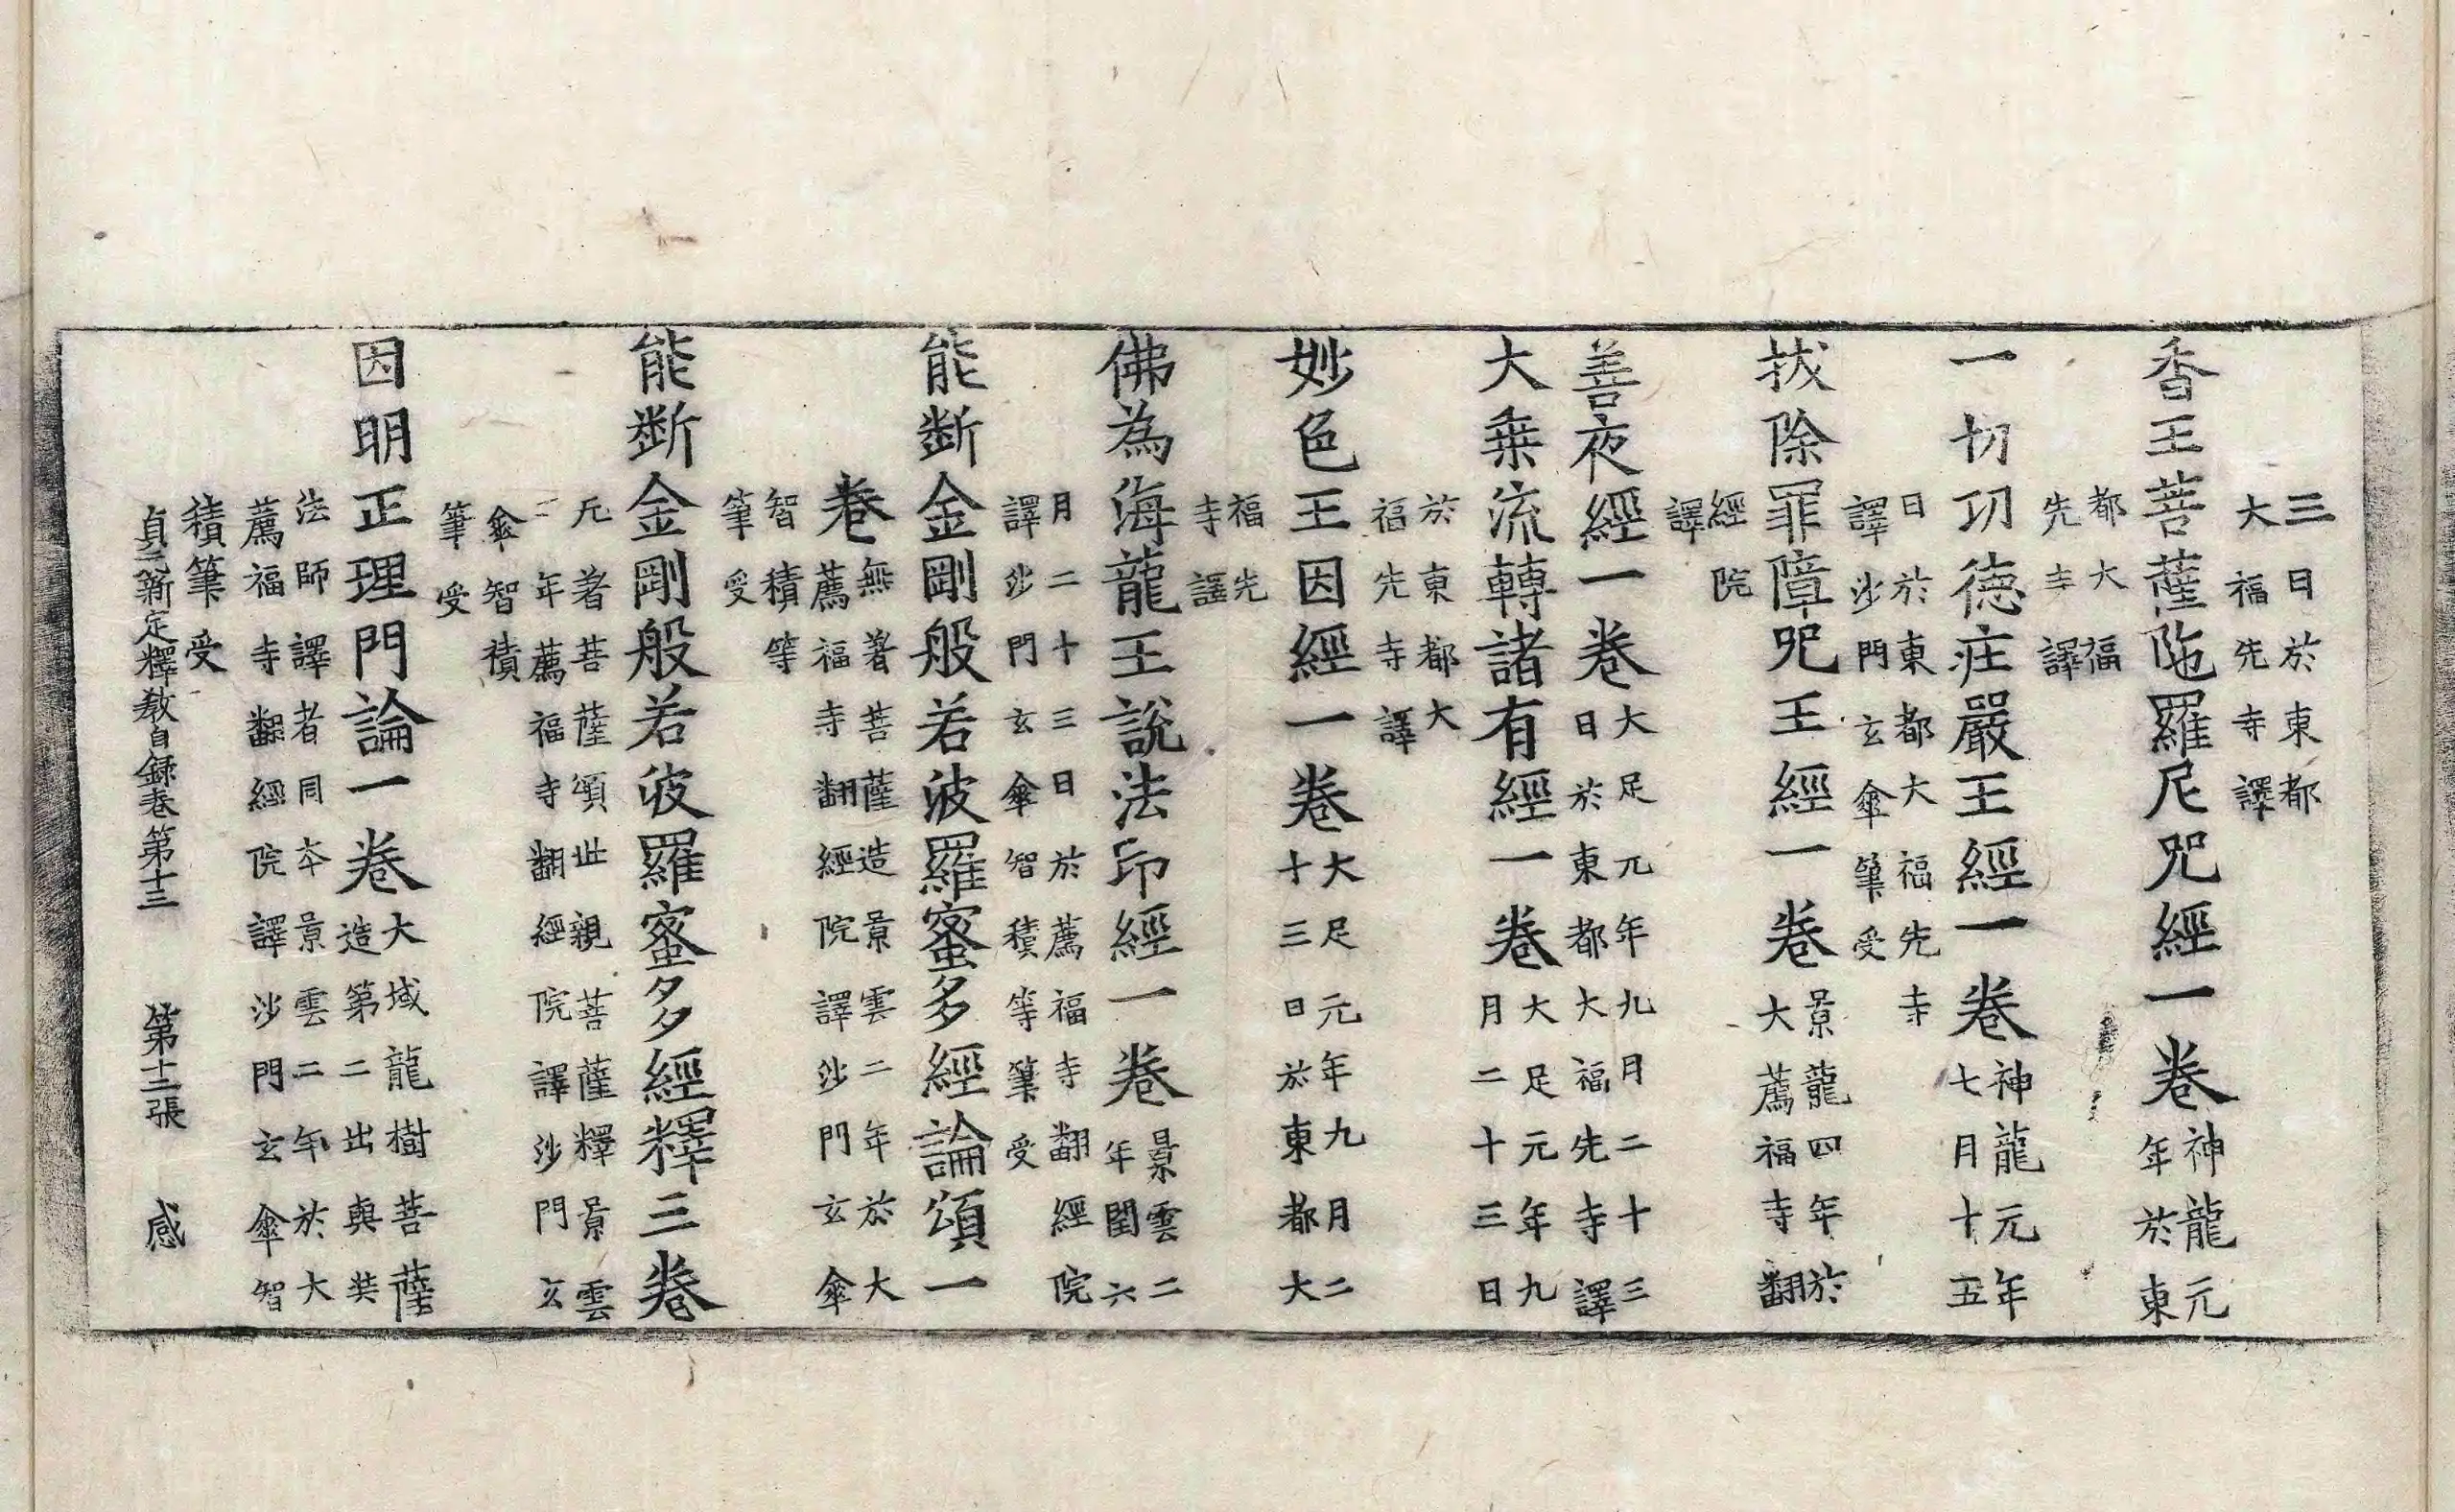 三日於東都
大福先寺譯
香王菩薩陁羅尼咒經一卷
神龍元
年於東
都大福
先寺譯
一切功德庄嚴王經一卷
神龍元年
七月十五
日於東都大福先寺
譯沙門玄傘筆受
拔除罪障咒王經一卷
景龍四年於
大薦福寺翻
經院
譯
善夜經一卷
大足元年九月二十三
日於東都大福先寺譯
大乗流轉諸有經一卷
大足元年九
月二十三日
於東都大
福先寺譯
妙色王因經一卷
大足元年九月二
十三日於東都大
福先
寺譯
佛為海龍王說法印經一卷
景雲二
年閏六
月二十三日於薦福寺翻經院
譯沙門玄傘智積等筆受
能断金剛般若波羅蜜多經論頌一
卷
無著菩薩造景雲二年於大
薦福寺翻經院譯沙門玄傘
智積等
筆受
能断金剛般若彼羅蜜多經釋三卷
无著菩薩頌世親菩薩釋景雲
二年薦福寺翻經院譯沙門玄
傘智積
筆受
因明正理門論一卷
大域龍樹菩薩
造第二出與奘
法師譯者同本景雲二年於大
薦福寺翻經院譯沙門玄傘智
積筆受
貞元新定釋教自録卷第十三 第十二張 感